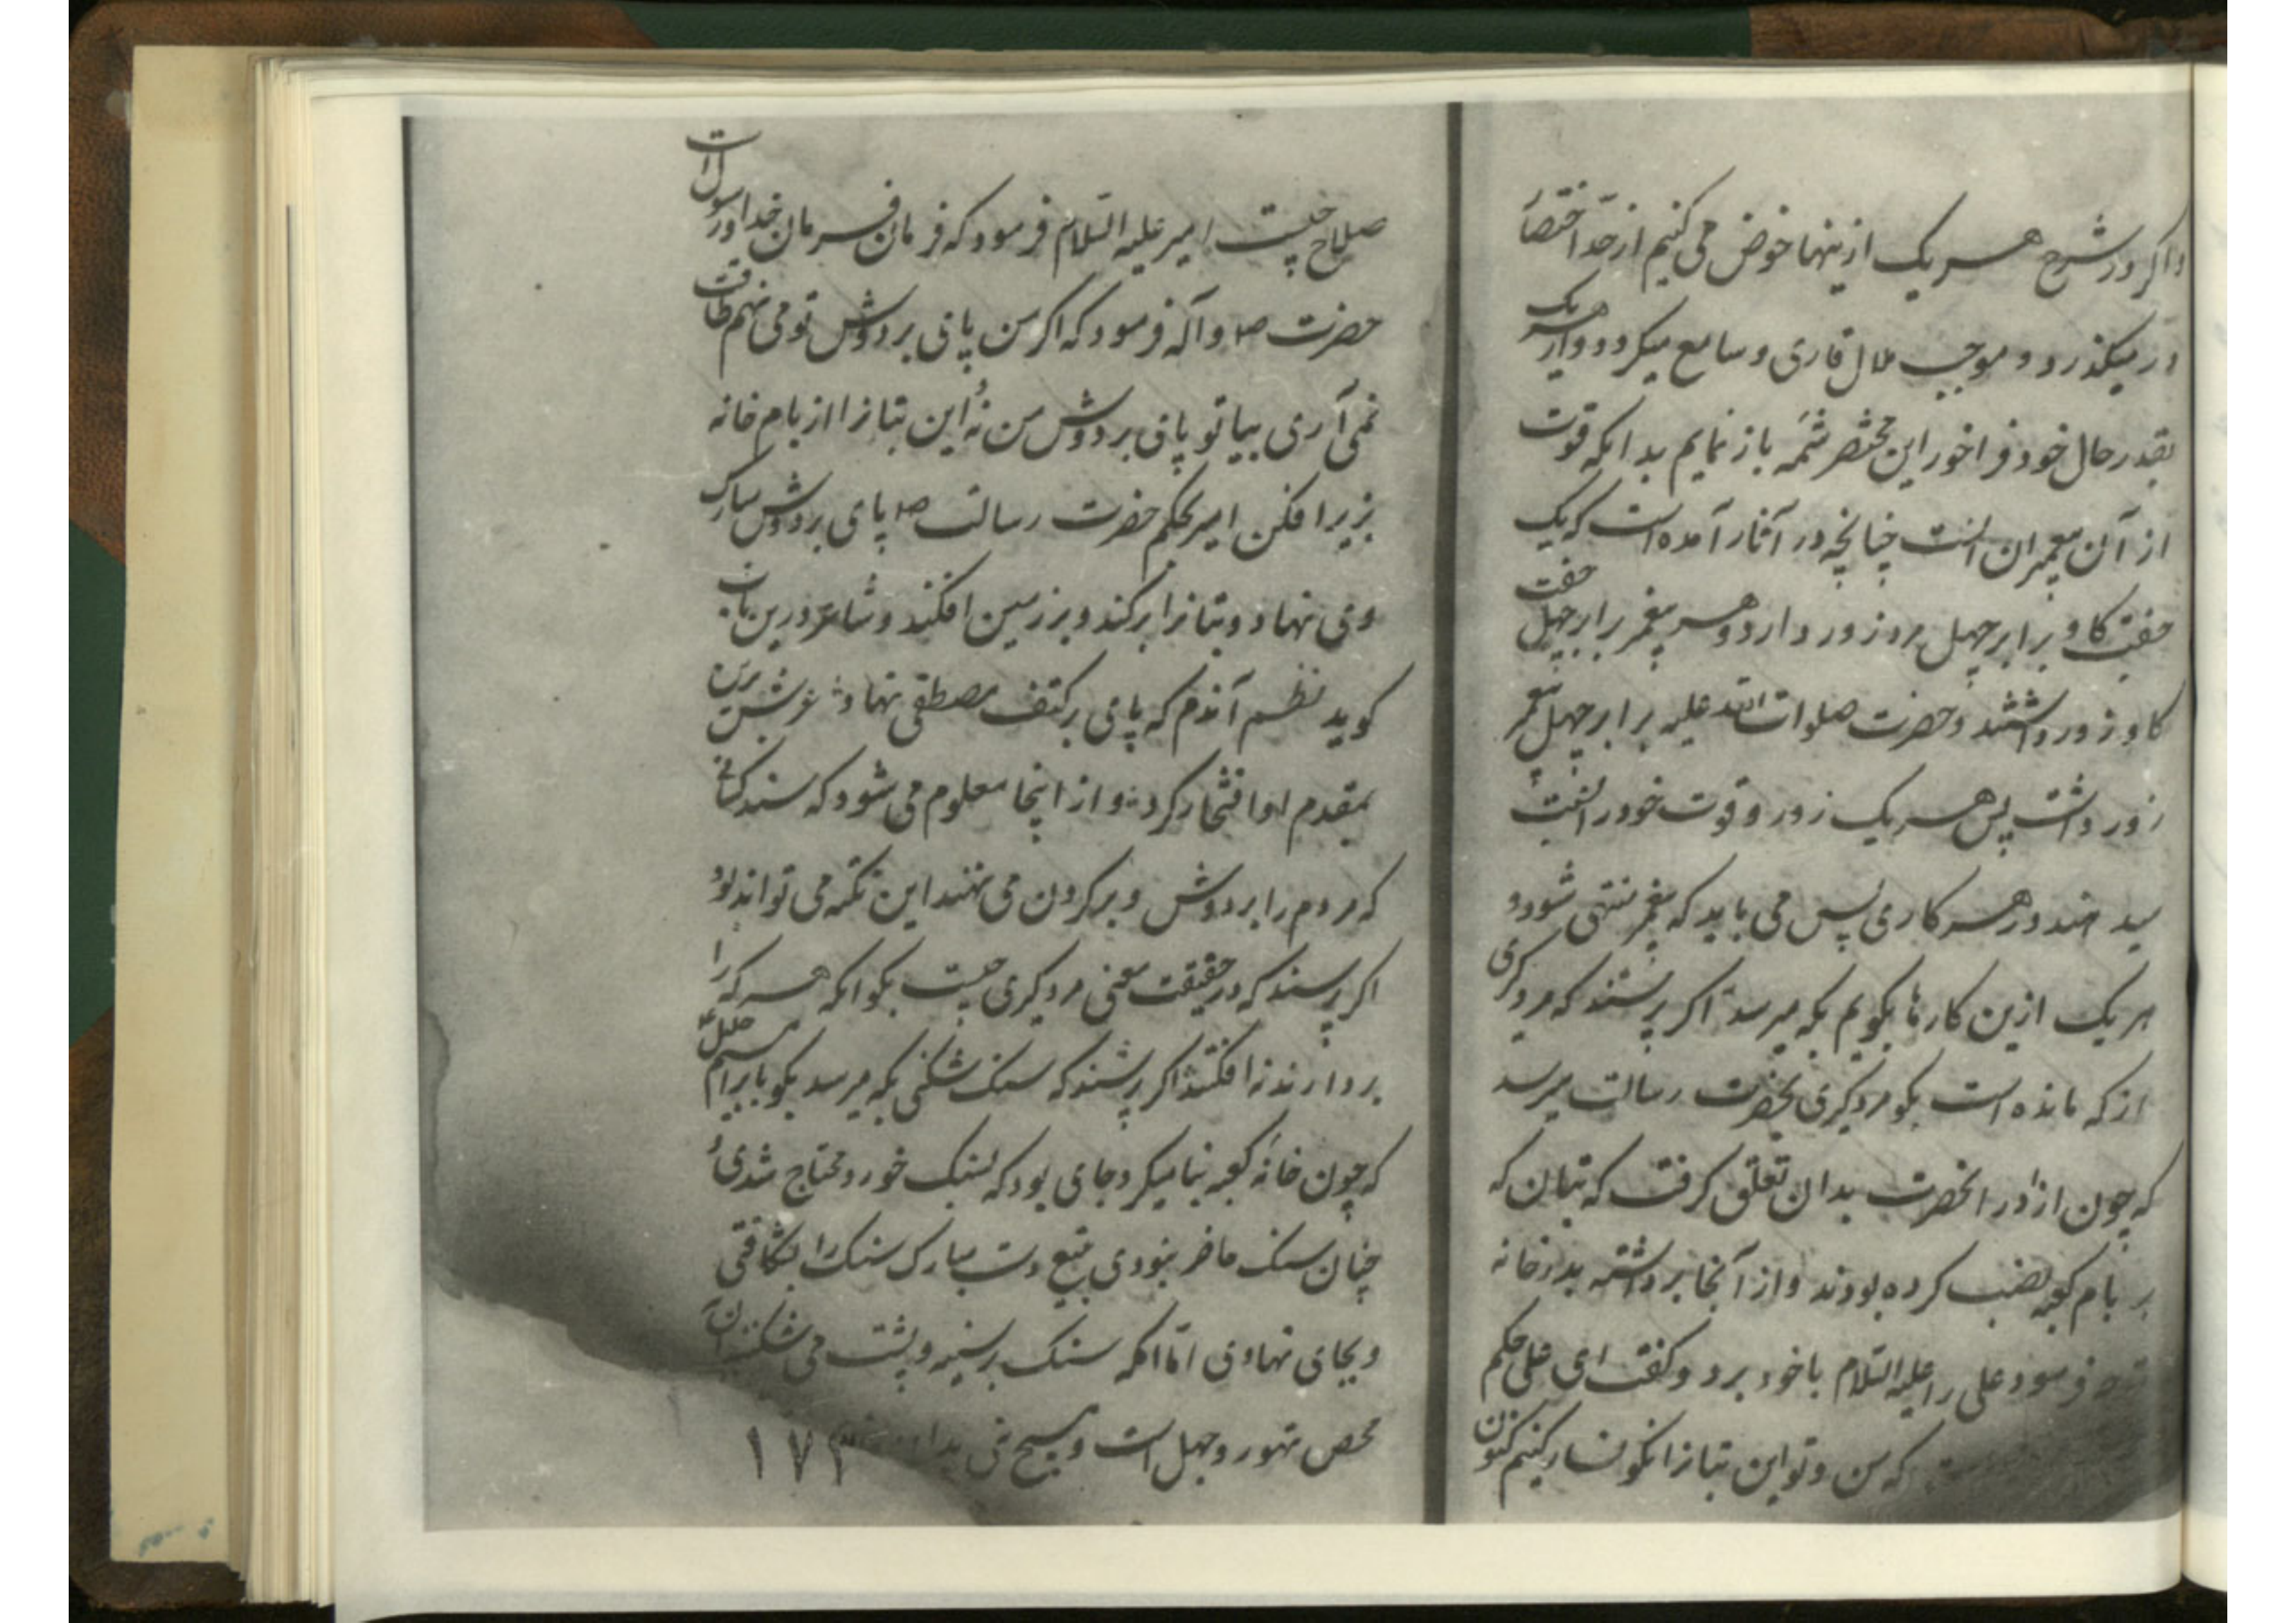 و اگر در شرح هر یک ازینها خوض می کنیم از حد اختصار
در میگذرد و موجب ملال قاری و سامع میگردد و از هر یک
بقدر حال خود فراخور این مختصر شمه باز نمایم بدانکه قوت
از آن پیغمبران است چنانچه در آثار آمده است که یک
جفت گاو برابر چهل مرد زور دارد و هر پیغمبر برابر چهل جفت
گاو زور داشتند و حضرت صلوات الله علیه برابر چهل پیغمبر
زور داشت پس هر یک زور و قوت خود را نسبت
سید هند در هر کاری پس می باید که به پیغمبر منتهی شود و
هر یک ازین کارها بگویم بکه میرسد اگر پرسند که مردگیری
از که مانده است بگو مردگیری بحضرت رسالت میرسد
که چون از در انحضرت بدان تعلق گرفت که بتان که
بر بام کعبه نصب کرده بودند و از آنجا برداشته بدر خانه
فرمود علی را علیه السلام با خود برد و گفت ای علی حکم
که من و تو این بتانرا نگونسار کنیم کنون
صلاح چیست امیر علیه السلام فرمود که فرمان فرمان خدا و رسول است
حضرت ص و آله فرمود که اگر من پای بر دوش تو می نهم طاقت
نمی آری بیا تو پای بر دوش من نه این بتانرا از بام خانه
بزیر افکن امیر بحکم حضرت رسالت ص پای بر دوش مبارک
وی نهاد و بتانرا برکند و بر زمین افکند و شاعر درین باب
گوید نظم آندم که پای بر کتف مصطفی نهاد عرش برین
بمقدم او افتخار کرد و از اینجا معلوم می شود که سند کسانی
که مردم را بر دوش و بر گردن می نهند این نکته می تواند بود
اگر پرسند که در حقیقت معنی مردگیری چیست بگو انکه هر که را
بردارند نه افکنند اگر پرسند که سنک شکنی بکه میرسد بگو بابراهیم خلیل ع
که چون خانه کعبه بنا میکرد جای بود که بسنک خورد محتاج شدی و
چنان سنک حاضر نبودی بتیغ دست مبارک سنک را بشکافتی
و بجای نهادی اما انکه سنک بر سینه و پشت می شکنند آن
محض تهور و جهل است و هیچ
۱۷۳